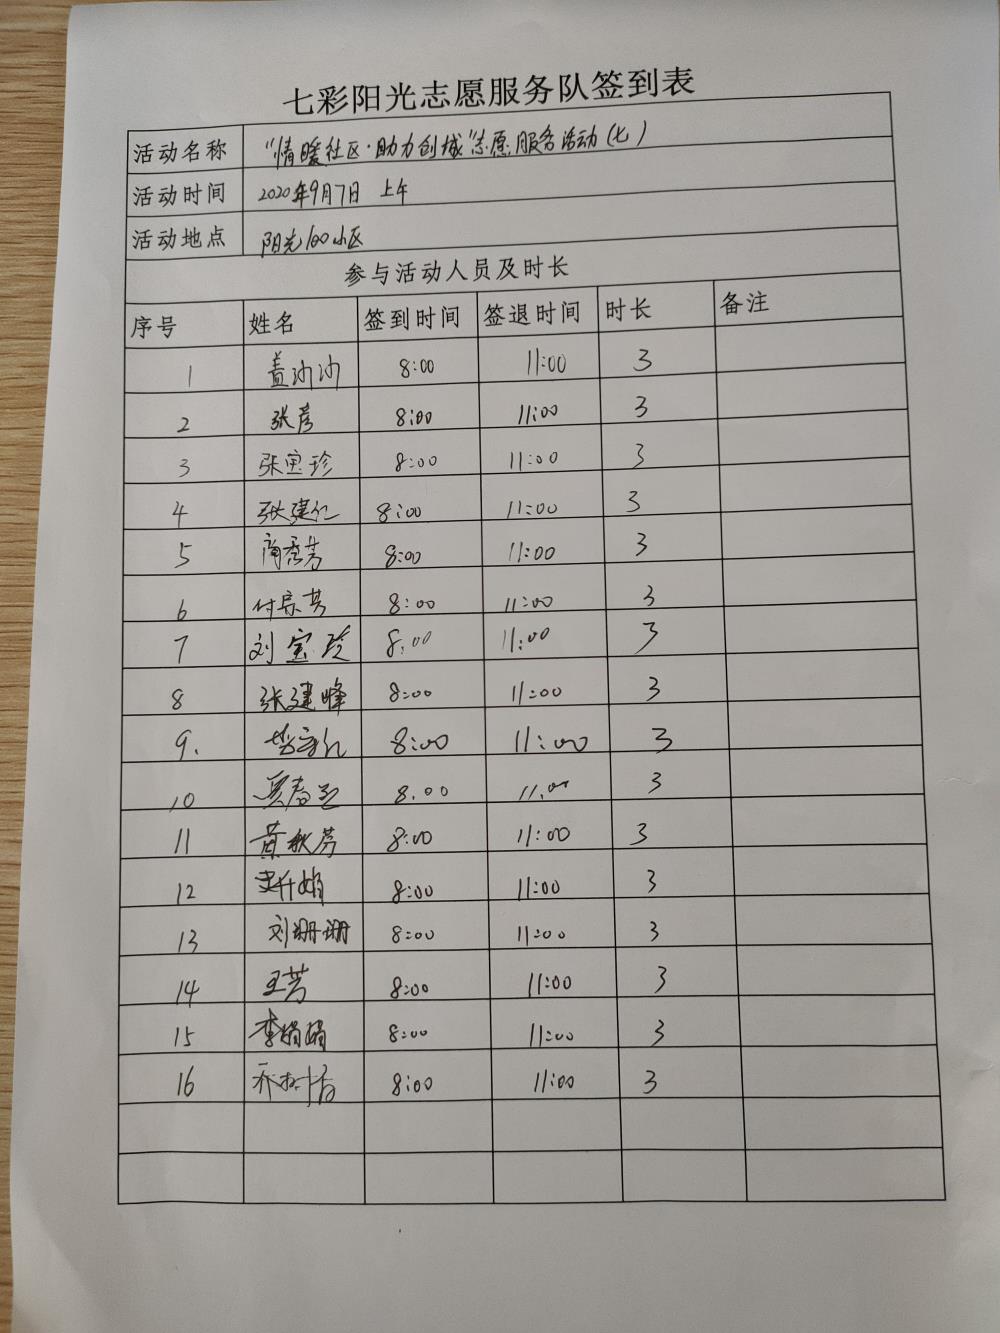 七彩阳光志愿服务队签到表
活动名称 “情暖社区·助力创城”志愿服务活动(七)
活动时间 2020年9月7日 上午
活动地点 阳光100小区
参与活动人员及时长
序号 姓名 签到时间 签退时间 时长 备注
1 盖沙沙 8:00 11:00 3
2 张彦 8:00 11:00 3
3 张宝珍 8:00 11:00 3
4 张建仁 8:00 11:00 3
5 商秀芳 8:00 11:00 3
6 付 芳 8:00 11:00 3
7 刘宝玲 8:00 11:00 3
8 张建峰 8:00 11:00 3
9. 8:00 11:00 3
10 8.00 11.00 3
11 黄秋芳 8:00 11:00 3
12 娟 8:00 11:00 3
13 刘珊珊 8:00 11:00 3
14 王芳 8:00 11:00 3
15 李娟娟 8:00 11:00 3
16 乔树香 8:00 11:00 3